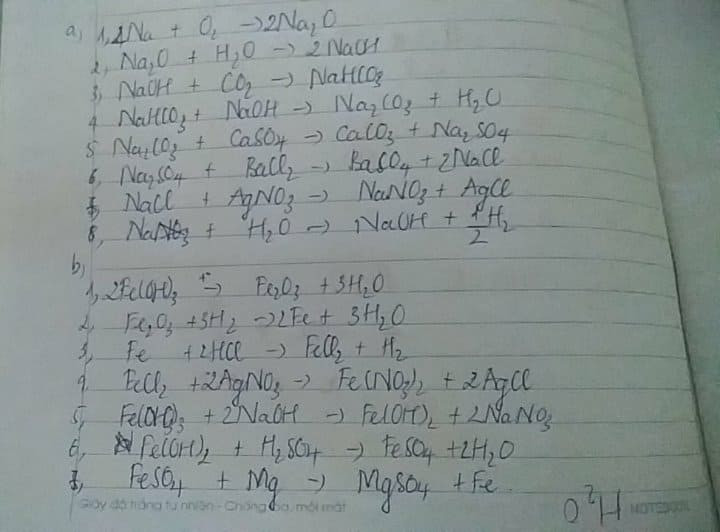 a, 1, 4Na + O₂ → 2Na₂O
2, Na₂O + H₂O → 2 NaOH
3, NaOH + CO₂ → NaHCO₃
4 NaHCO₃ + NaOH → Na₂CO₃ + H₂O
5 Na₂CO₃ + CaSO₄ → CaCO₃ + Na₂SO₄
6, Na₂SO₄ + BaCl₂ → BaSO₄ + 2NaCl
7, NaCl + AgNO₃ → NaNO₃ + AgCl
8, + H₂O → NaOH + 1/2 H₂
b,
1, 2Fe(OH)₃ t° → Fe₂O₃ + 3H₂O
2, Fe₂O₃ + 3H₂ → 2Fe + 3H₂O
3, Fe + 2HCl → FeCl₂ + H₂
4, FeCl₂ + 2AgNO₃ → Fe(NO₃)₂ + 2AgCl
5, + 2NaOH → Fe(OH)₂ + 2NaNO₃
6, Fe(OH)₂ + H₂SO₄ → FeSO₄ + 2H₂O
7, FeSO₄ + Mg → MgSO₄ + Fe
Giấy độ trắng tự nhiên - Chống lóa, mỏi mắt
O²H NOTEBOOK